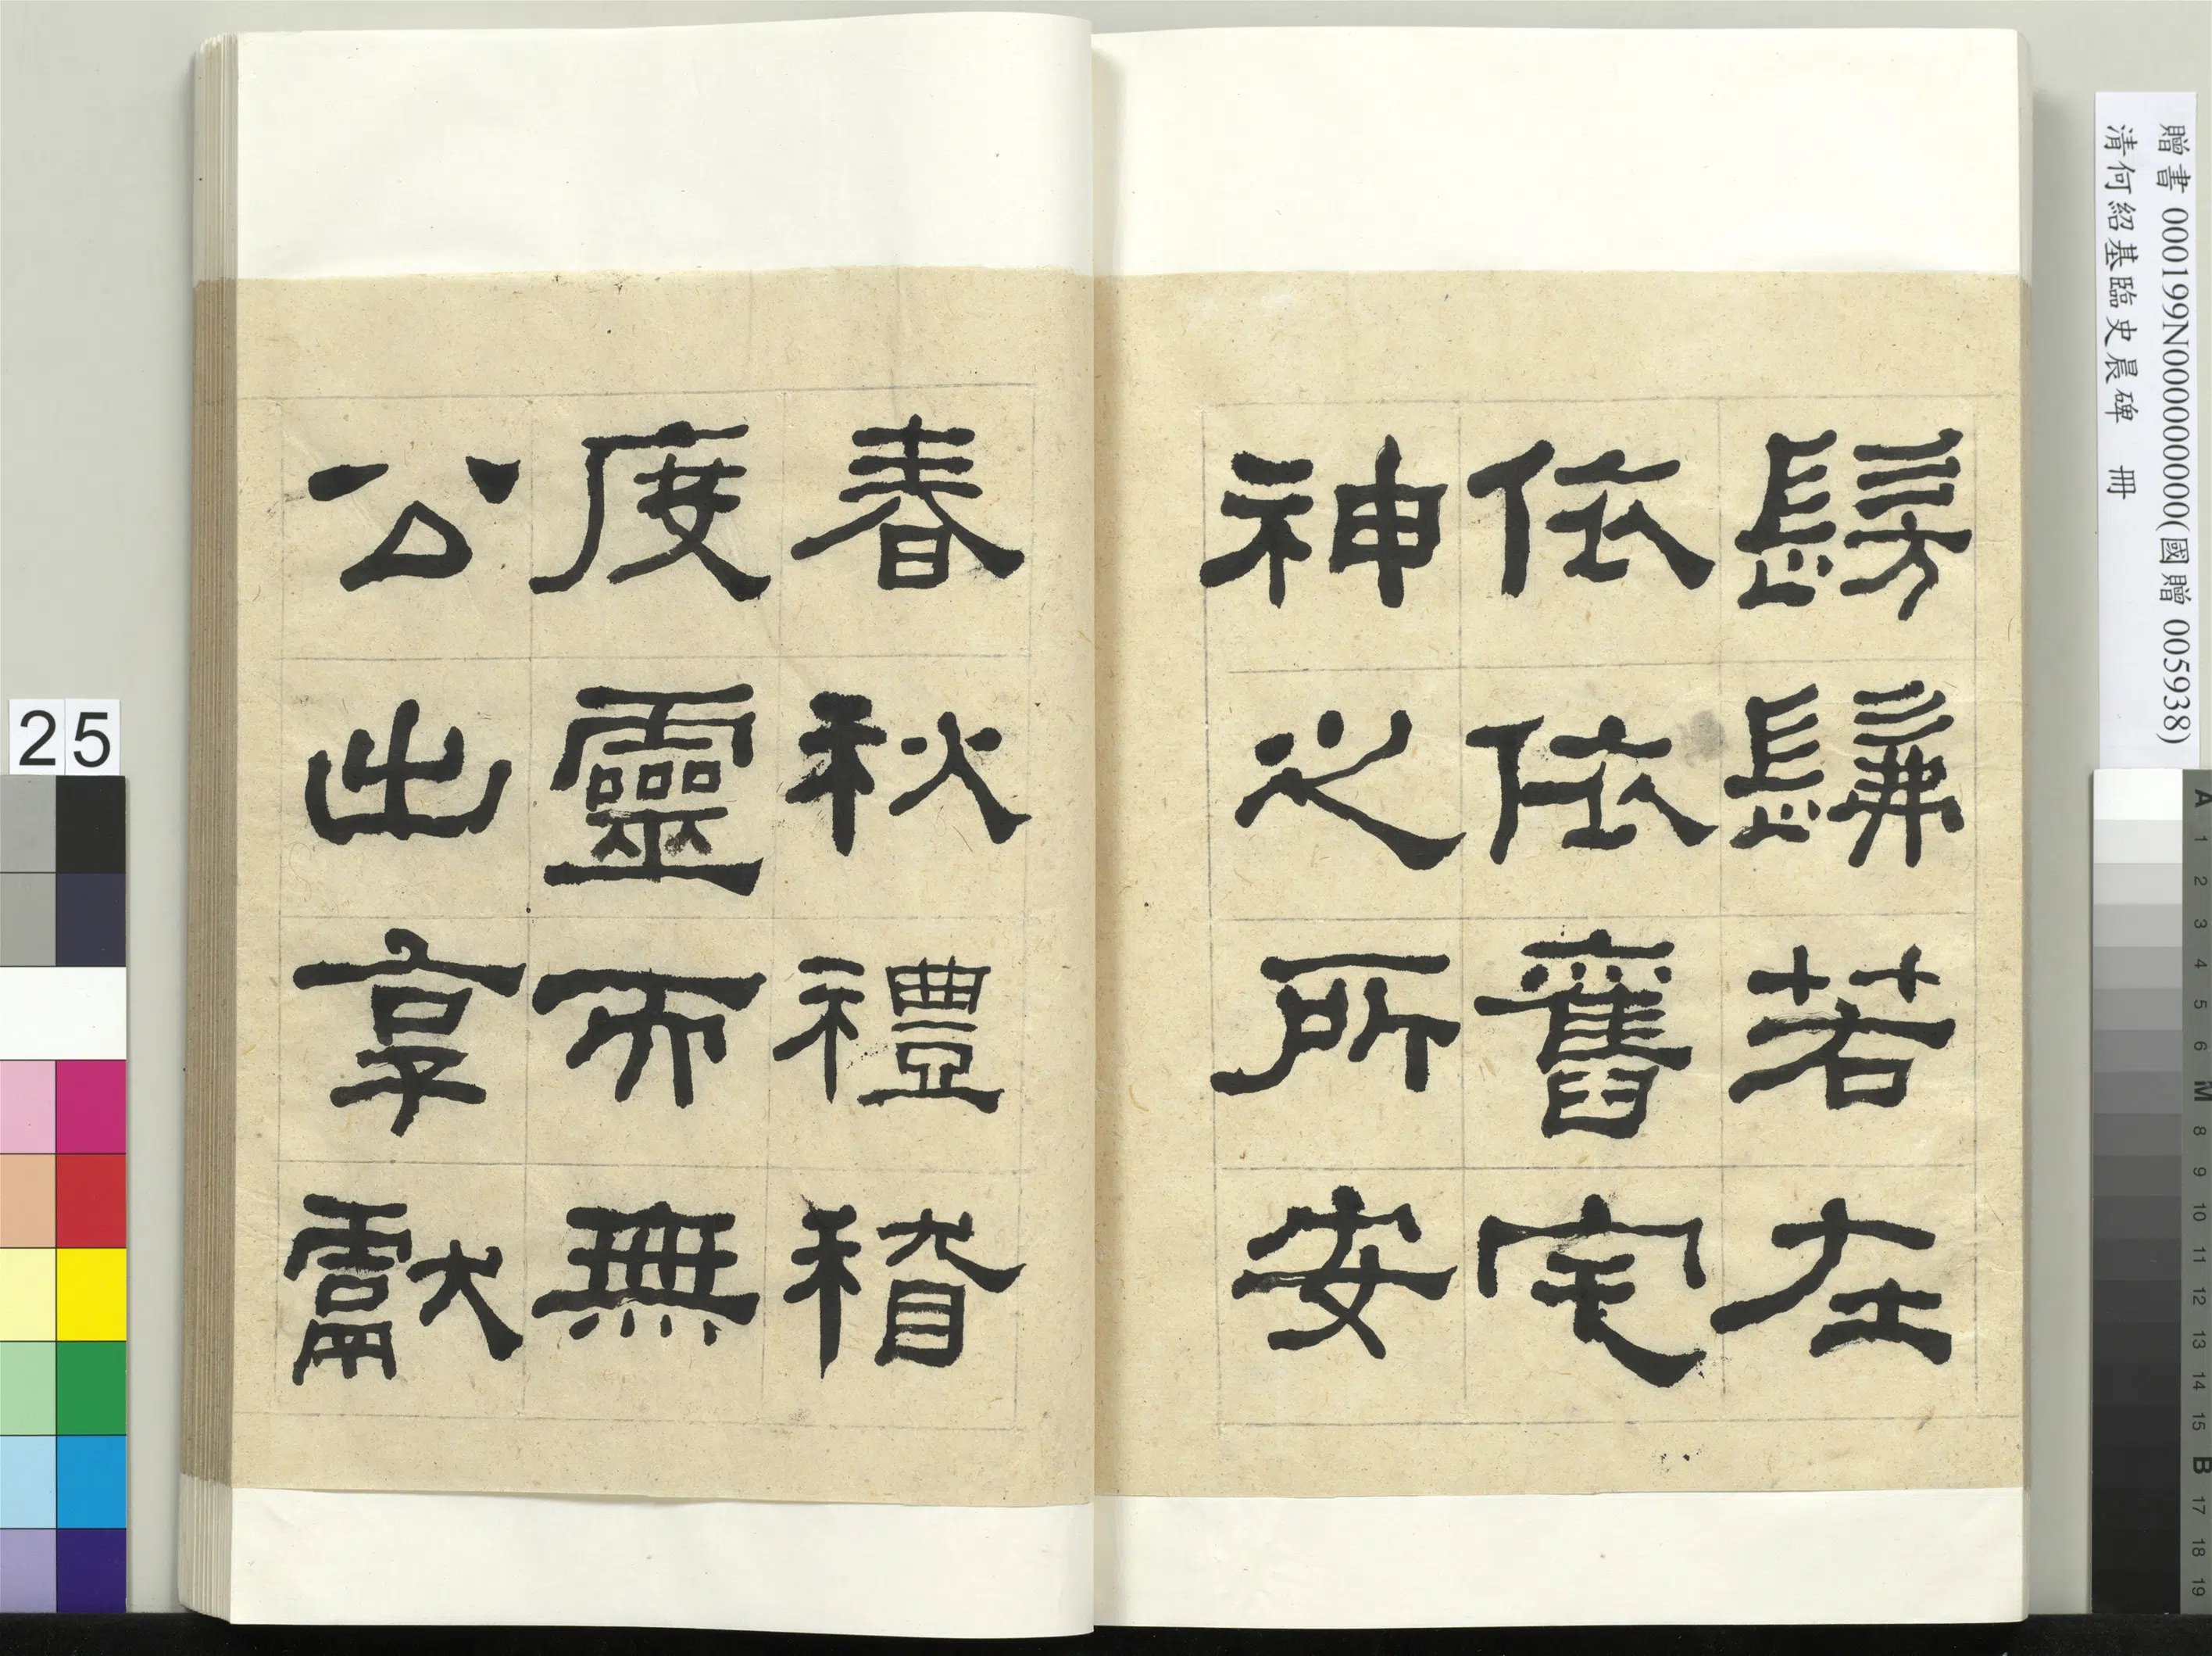 贈書 000199N000000000(國贈 005938)
清何紹基臨史晨碑 冊
髣髴若在
依依舊宅
神之所安
春秋禮稽
度靈而無
公出享獻
25
A 1 2 3 4 5 6 M 8 9 10 11 12 13 14 15 B 17 18 19